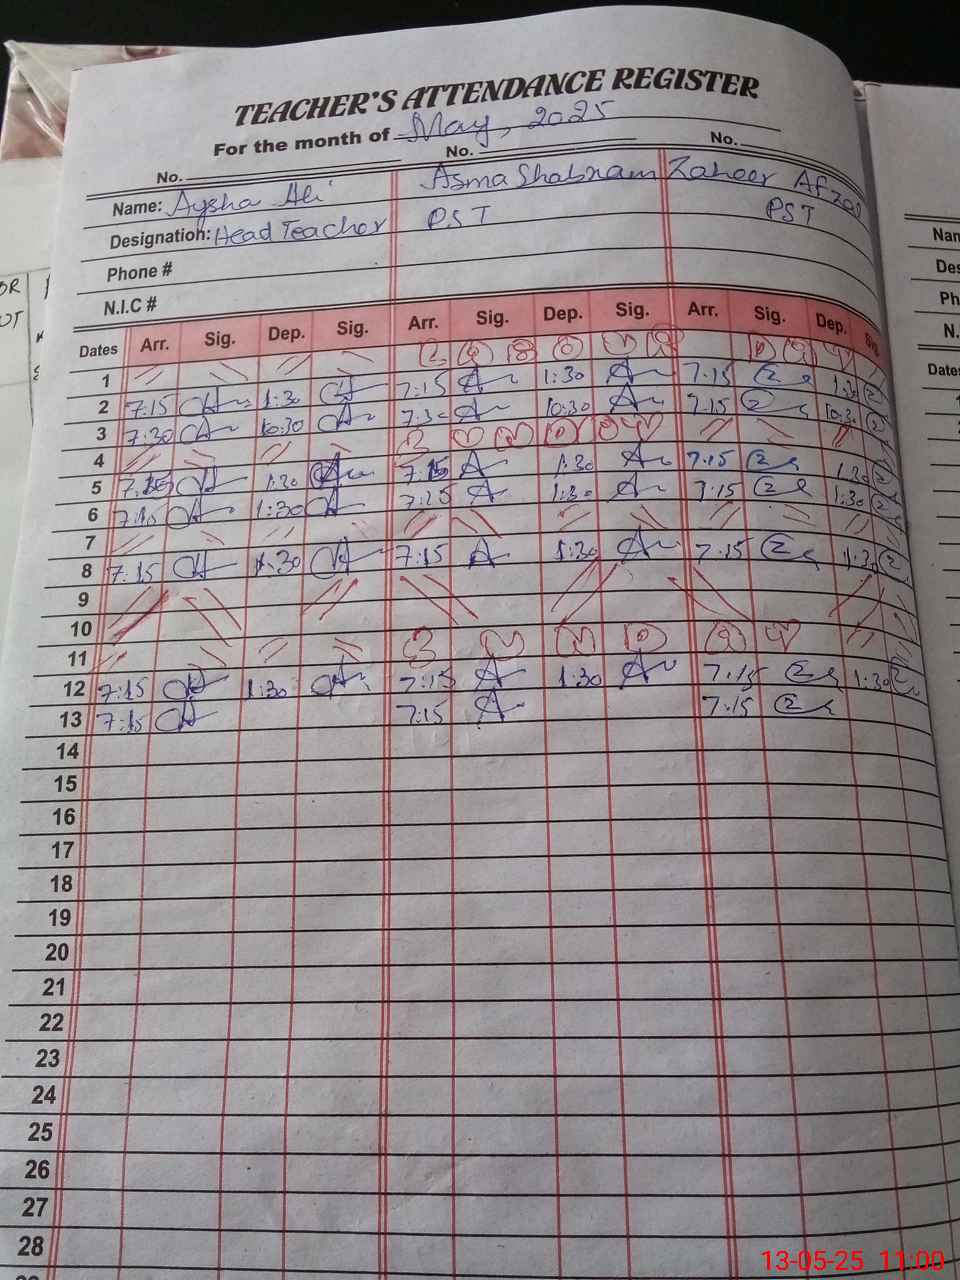 TEACHER'S ATTENDANCE REGISTER
For the month of May, 2025
No. No. No.
Name: Aysha Ali Asma Shabnam Zaheer Afzal
Designation: Head Teacher PST PST
Phone #
N.I.C #
Dates Arr. Sig. Dep. Sig. Arr. Sig. Dep. Sig. Arr. Sig. Dep. Sig.
1
2 7:15 1:30 7:15 1:30 7:15 1:30
3 7:30 10:30 7:30 10:30 7:15 10:30
4
5 7:15 1:30 7:15 1:30 7:15 1:30
6 7:15 1:30 7:15 1:30 7:15 1:30
7
8 7:15 1:30 7:15 1:30 7:15 1:30
9
10
11
12 7:15 1:30 7:15 1:30 7:15 1:30
13 7:15 7:15 7:15
14
15
16
17
18
19
20
21
22
23
24
25
26
27
28
Nam
Des
Ph
N.
Dates
OR
OT
13-05-25 11:00